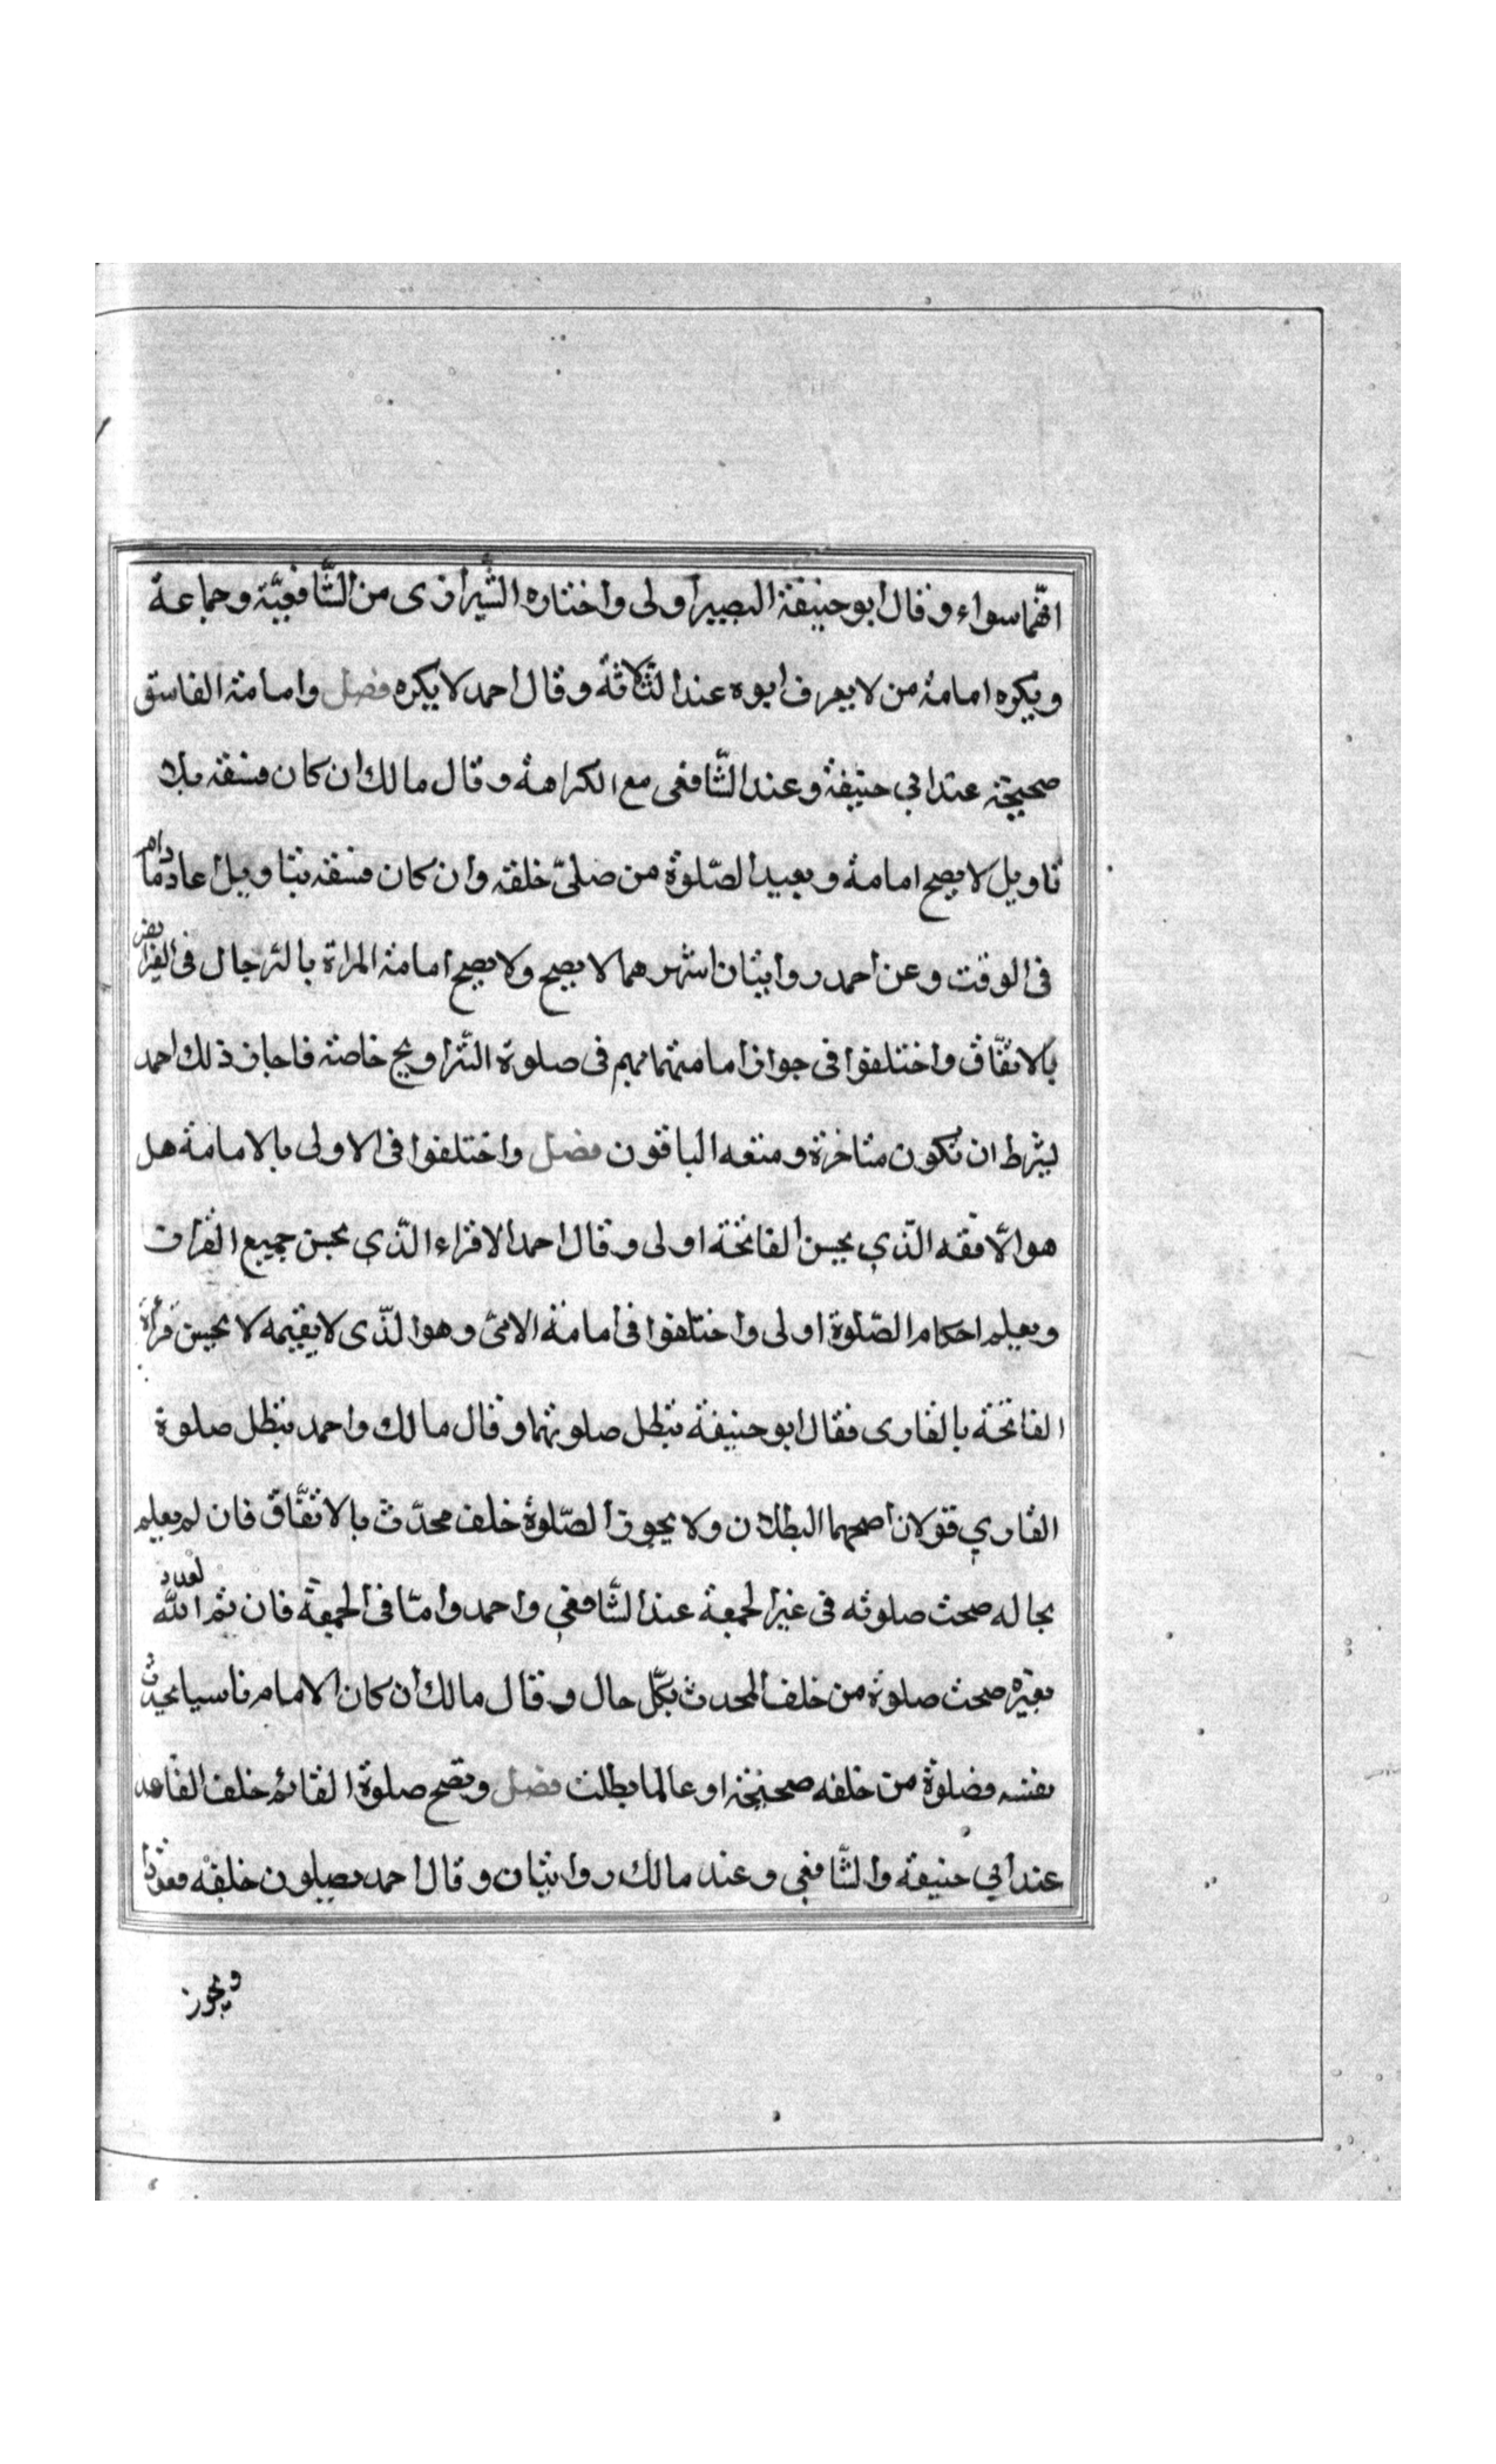 انّهما سواء وقال ابو حنيفة البصير اولى واختاره الشّيرازى من الشّافعيّة وجماعة
ويكره امامة من لا يعرف ابوه عند الثّلاثة وقال احمد لا يكره فصل وامامة الفاسق
صحيحة عند ابي حنيفة وعند الشّافعى مع الكراهة وقال مالك ان كان فسقه بلا
تاويل لا يصح امامة ويعيد الصّلوة من صلىّ خلفه وان كان فسقه بتاويل اعاد مادام
فى الوقت وعن احمد روايتان اشهرهما لا يصح ولا يصح امامة المراة بالرجال فى الفرايض
بالاتفّاق واختلفوا فى جواز امامتها بهم فى صلوة التّراويح خاصة فاجاز ذلك احمد
بشرط ان تكون متاخرة ومنعه الباقون فصل واختلفوا فى الاولى بالامامة هل
هو الّافقه الّذي يحسن الفاتحة اولى وقال احمد الاقراء الّذي يحسن جميع القران
ويعلم احكام الصّلوة اولى واختلفوا فى امامة الامىّ وهو الّذى لا يقيمه لا يحسن قراة
الفاتحة بالقارى فقال ابو حنيفة تبطل صلوتهما وقال مالك واحمد تبطل صلوة
القاري قولان اصحهما البطلان ولا يجوز الصّلوة خلف محدّث بالاتفّاق فان لم يعلم
بحاله صحت صلوته فى غير الجمعة عند الشّافعي واحمد وامّا فى الجمعة فان تم العدد
بغيره صحت صلوة من خلف المحدث بكلّ حال وقال مالك ان كان الامام ناسيا بحدث
نفسه فصلوة من خلفه صحيحة او عالما بطلت فصل وتصح صلوة القائم خلف القاعد
عند ابي حنيفة والشّافعى وعند مالك روايتان وقال احمد يصلون خلفه قعودا
ويجوز